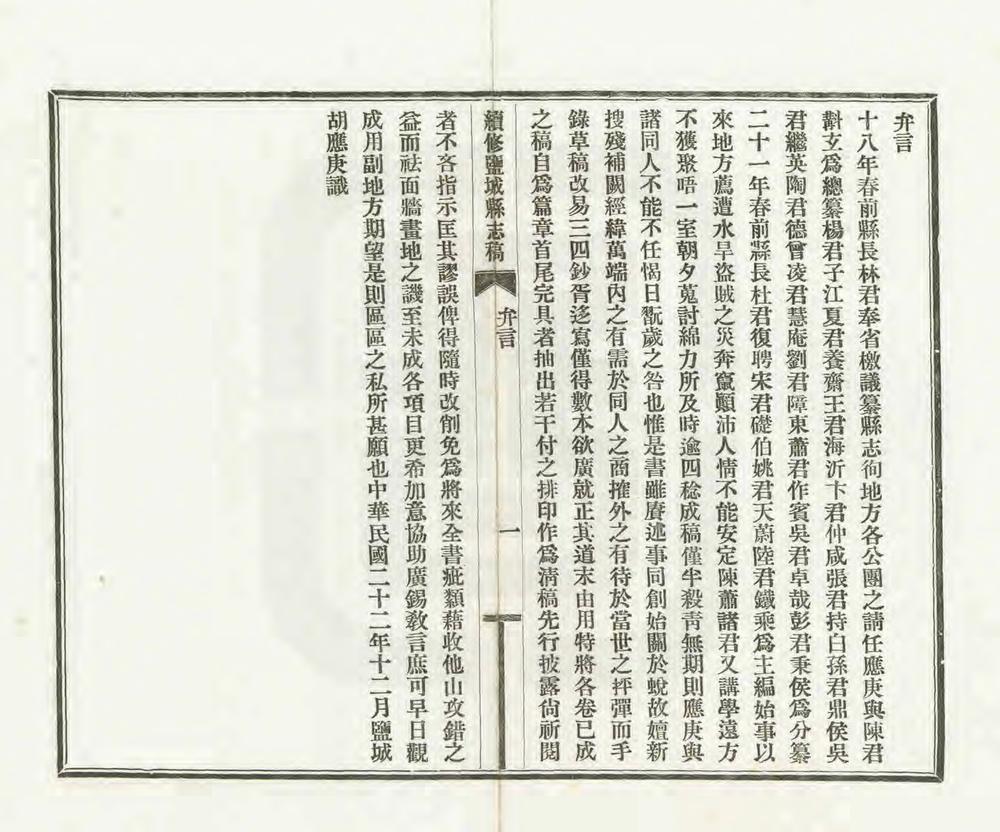 弁言
十八年春前縣長林君奉省檄議纂縣志徇地方各公團之請任應庚與陳君
斠玄爲總纂楊君子江夏君養齋王君海沂卞君仲咸張君持白孫君鼎侯吳
君繼英陶君德曾凌君慧庵劉君障東蕭君作賓吳君卓哉彭君秉侯爲分纂
二十一年春前縣長杜君復聘宋君礎伯姚君天蔚陸君鐵乘爲主編始事以
來地方薦遭水旱盜賊之災奔竄顚沛人情不能安定陳蕭諸君又講學遠方
不獲聚晤一室朝夕蒐討綿力所及時逾四稔成稿僅半殺靑無期則應庚與
諸同人不能不任愒日翫歲之咎也惟是書雖賡述事同創始關於蛻故嬗新
搜殘補闕經緯萬端內之有需於同人之商搉外之有待於當世之抨彈而手
錄草稿改易三四鈔胥迻寫僅得數本欲廣就正其道末由用特將各卷已成
之稿自爲篇章首尾完具者抽出若干付之排印作爲淸稿先行披露尙祈閱
續修鹽城縣志稿 弁言 一
者不吝指示匡其謬誤俾得隨時改削免爲將來全書疵纇藉收他山攻錯之
益而祛面牆畫地之譏至未成各項目更希加意協助廣錫敎言庶可早日觀
成用副地方期望是則區區之私所甚願也中華民國二十二年十二月鹽城
胡應庚識